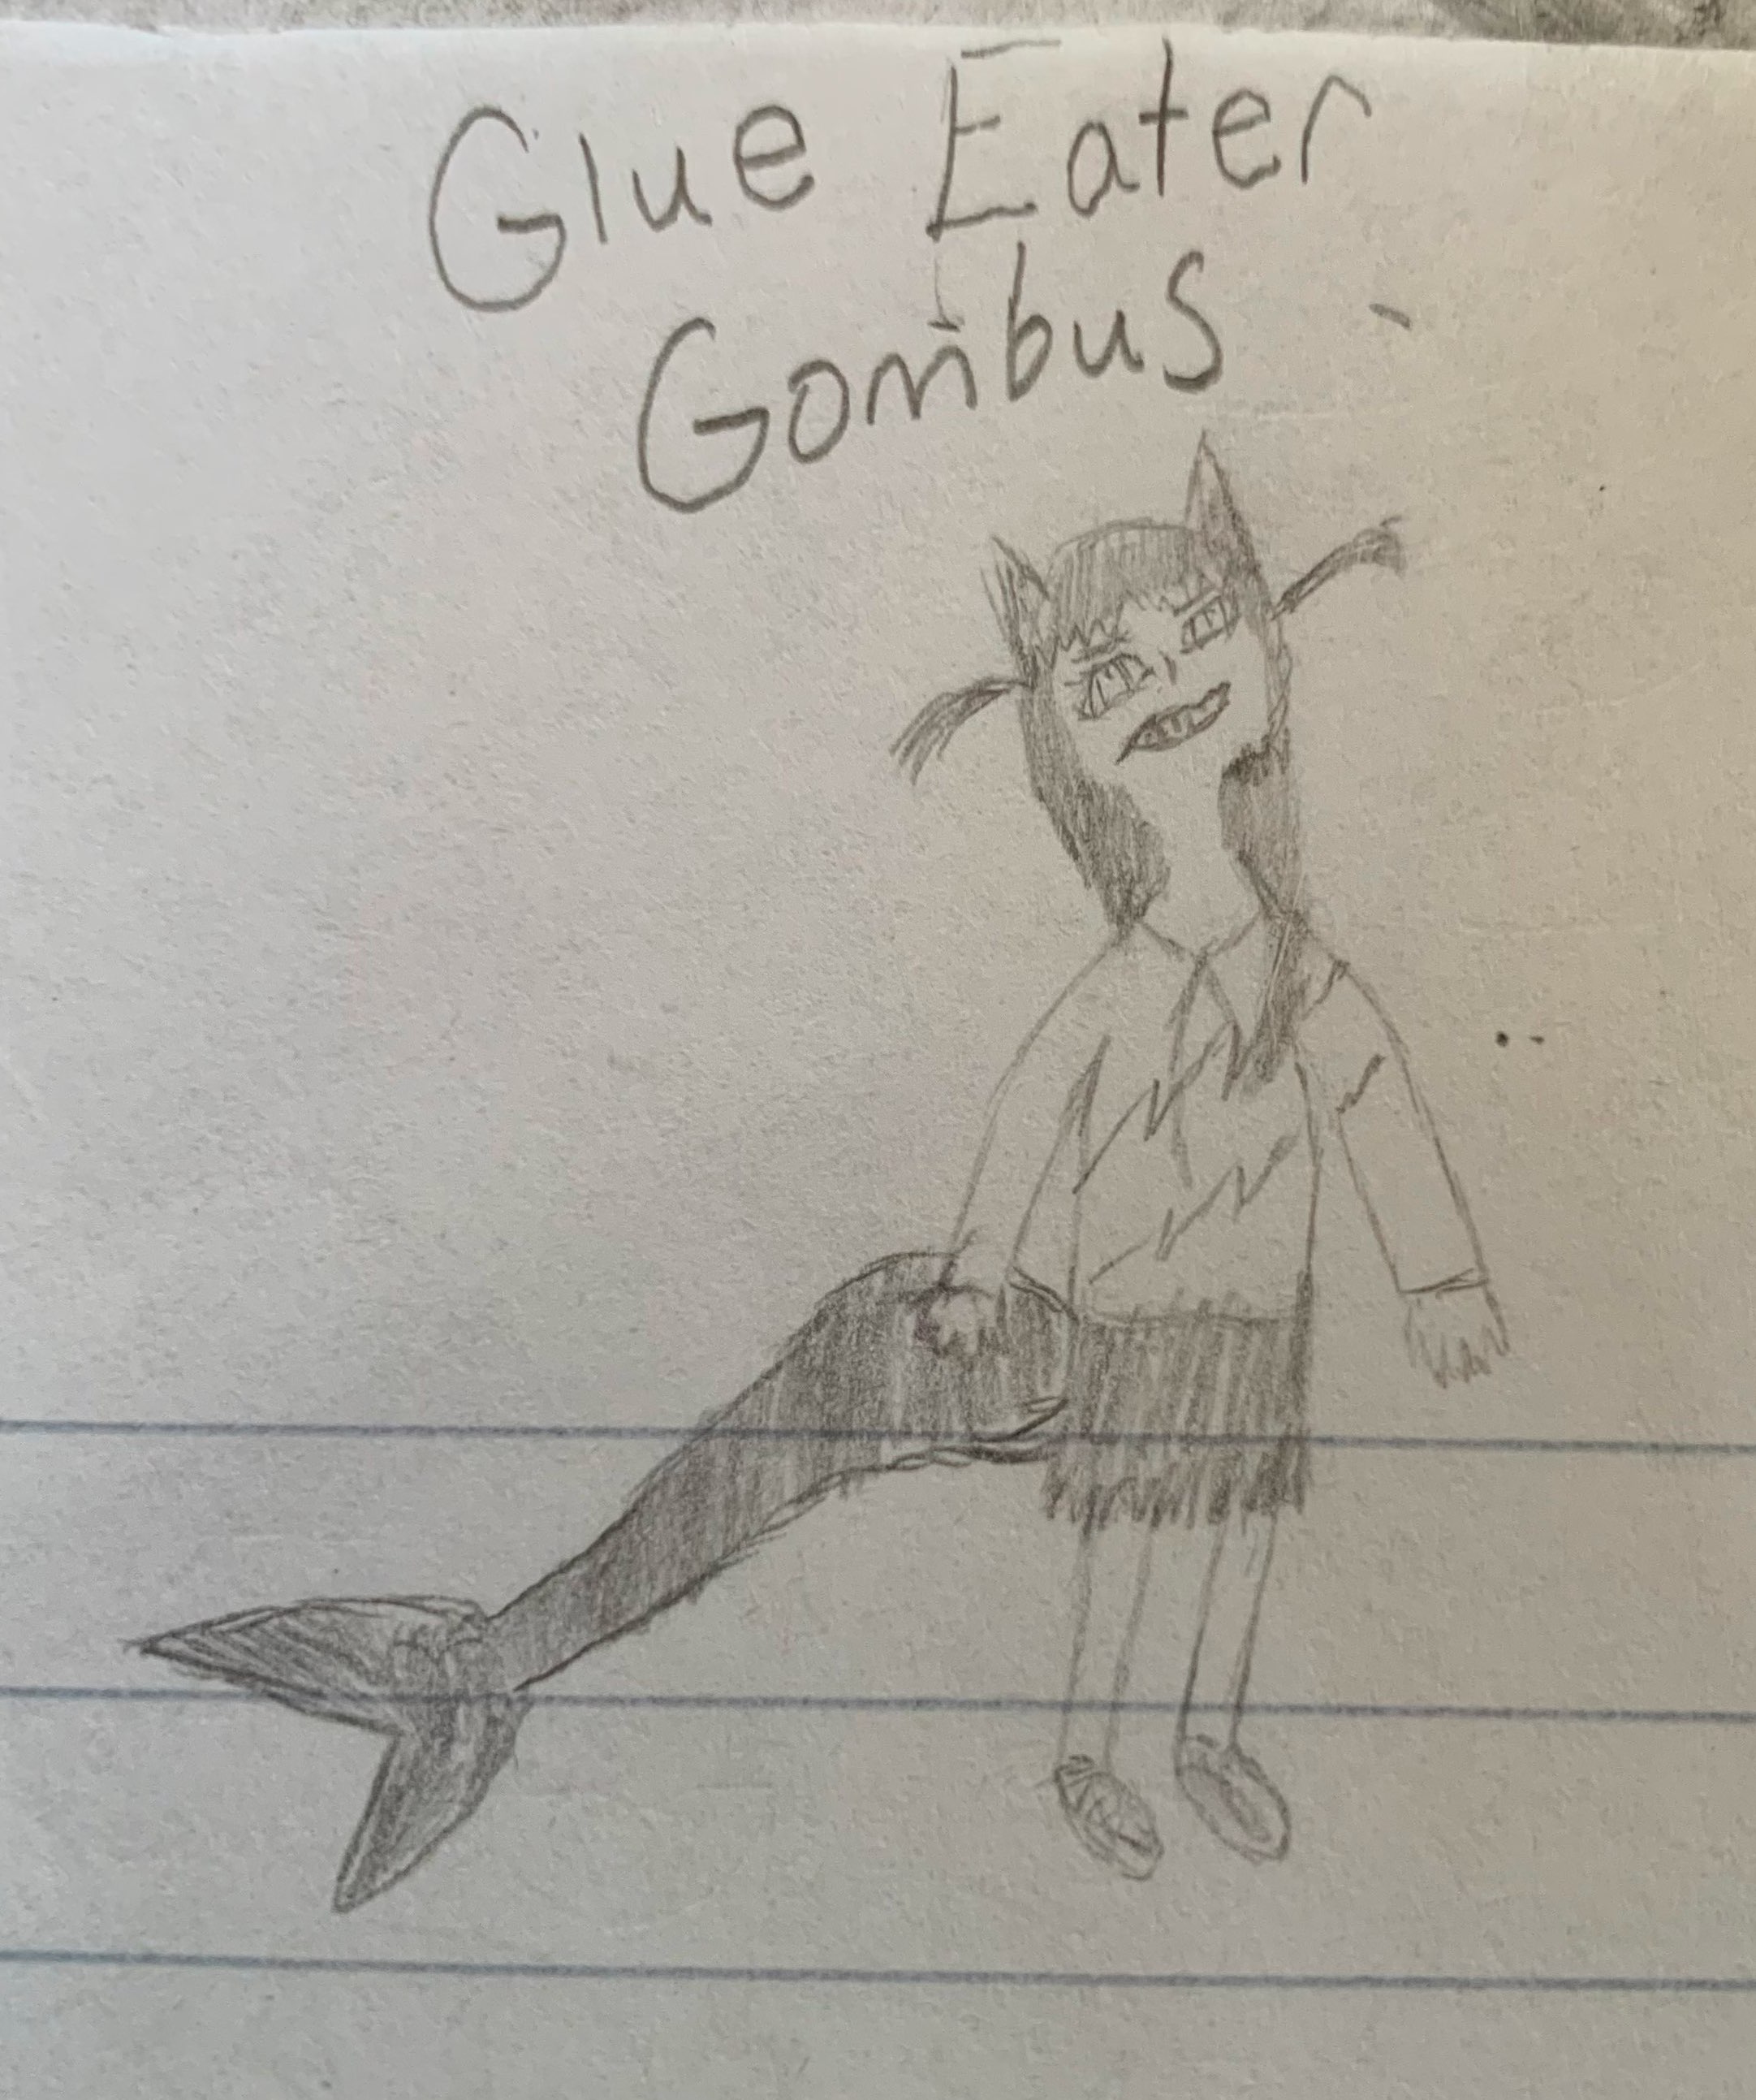 Glue Eater
Gombus